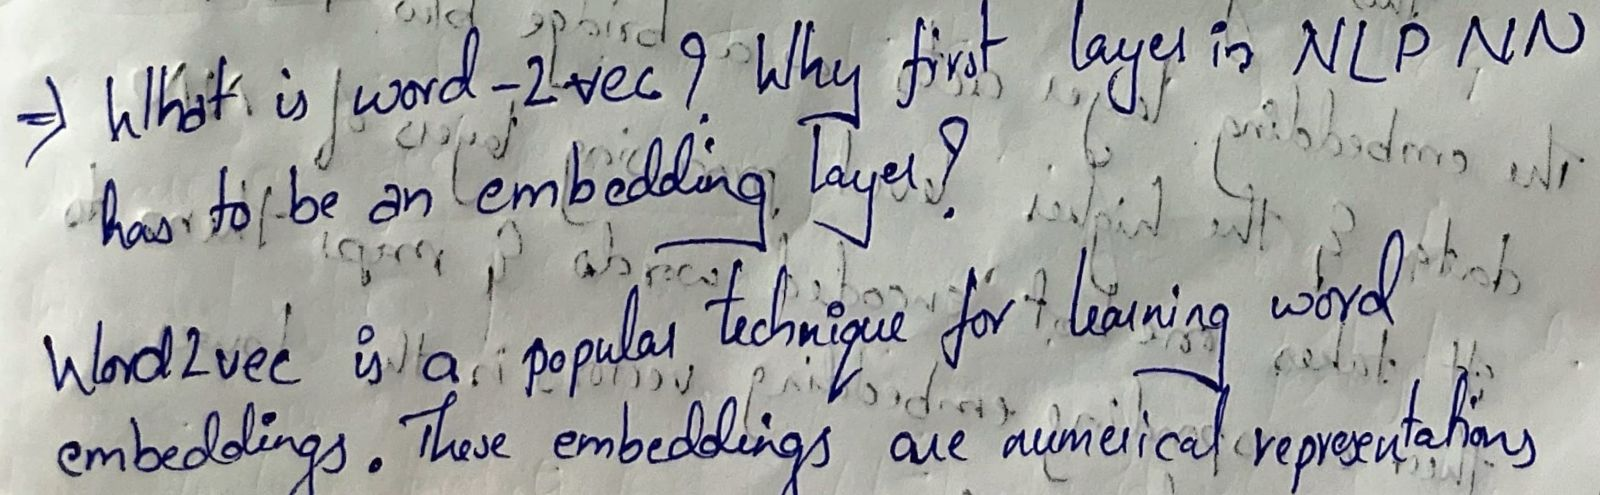 ⇒ What is word-2-vec? Why first layer in NLP NN
has to be an embedding layer?
Word2vec is a popular technique for learning word
embeddings. These embeddings are numerical representations